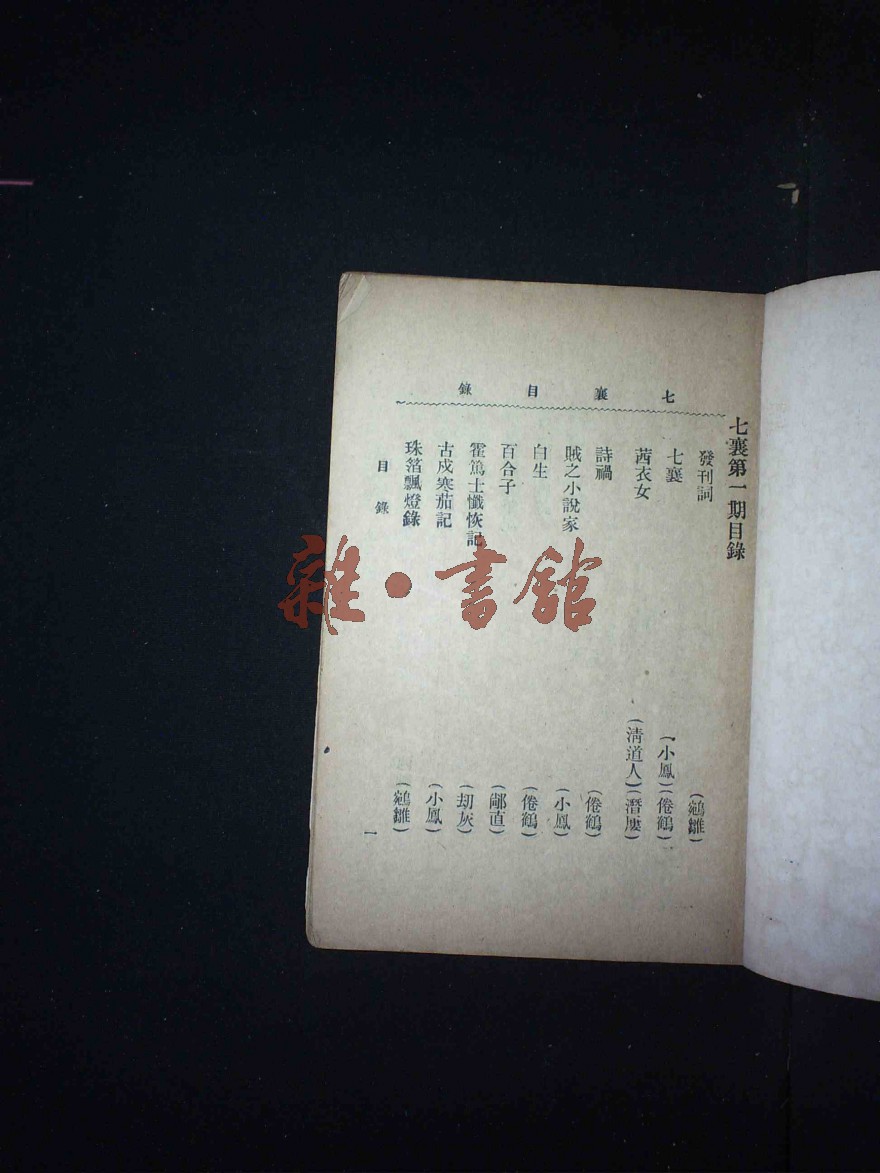 七襄第一期目錄
七襄目錄
發刊詞 (鵷雛)
七襄 (小鳳)(倦鶴)
茜衣女 (清道人)(潛廔)
詩禍 (倦鶴)
賊之小說家 (小鳳)
白生 (倦鶴)
百合子 (鄙直)
霍篤士懺悔記 (劫灰)
古戍寒茄記 (小鳳)
珠箔飄燈錄 (鵷雛)
目錄
一
雜·書館